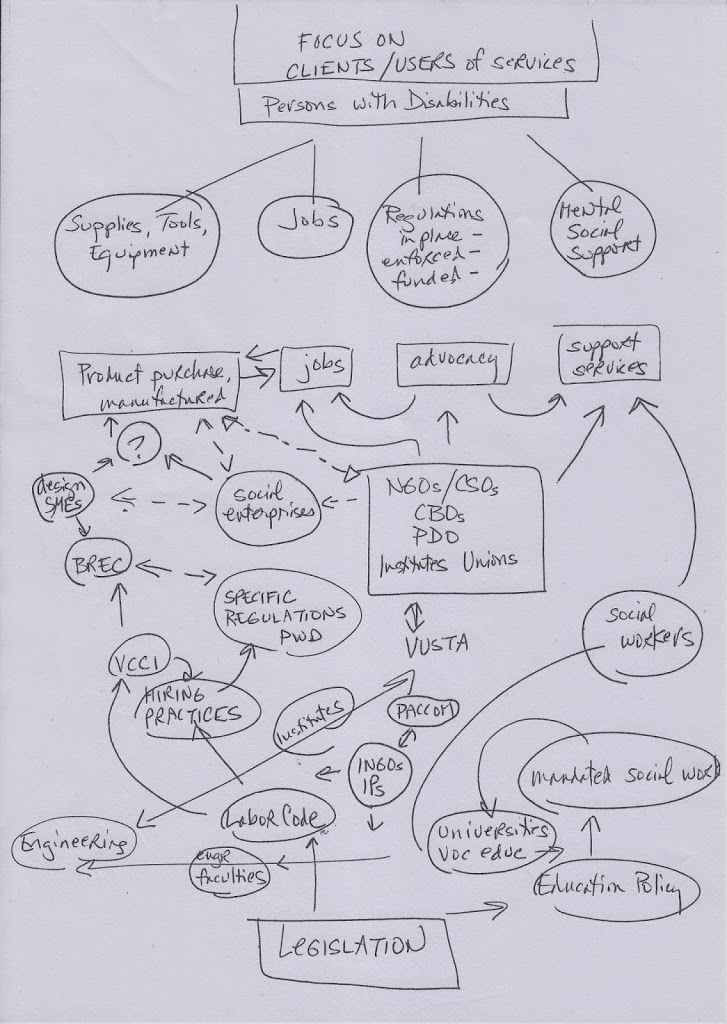 FOCUS ON
CLIENTS/USERS of SERVICES
Persons with Disabilities
Supplies, Tools,
Equipment
Jobs
Regulations
in place -
enforced -
funded -
Mental
Social
Support
Product purchase,
manufactured
jobs
advocacy
support
services
?
design
SMEs
social
enterprises
NGOs/CSOs
CBOs
PDO
Institutes Unions
BREC
SPECIFIC
REGULATIONS
PWD
VUSTA
social
workers
VCCI
HIRING
PRACTICES
Institutes
PACCOM
INGOs
IPs
mandated social work
Labor Code
Universities
voc educ
Engineering
engr
faculties
Education Policy
LEGISLATION